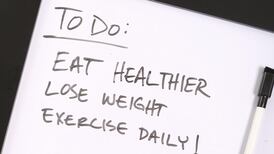 TO DO:
EAT HEALTHIER
LOSE WEIGHT
EXERCISE DAILY!